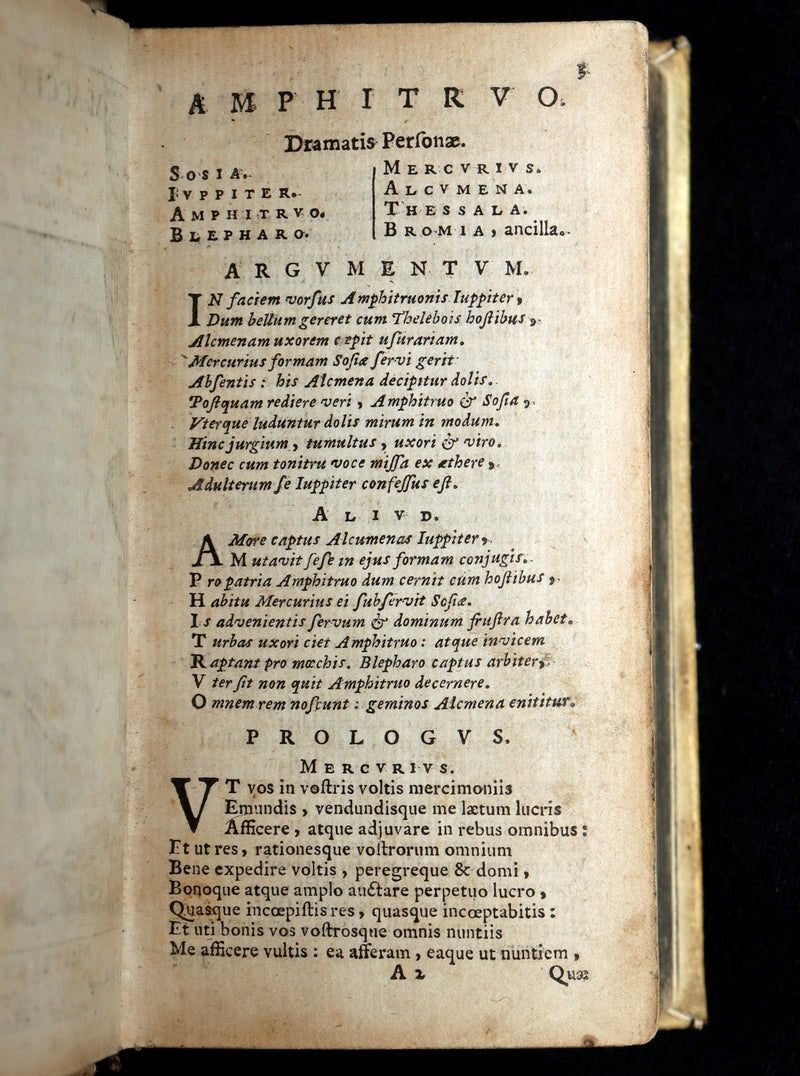 3
AMPHITRVO.
Dramatis Personæ.
SOSIA.
IVPPITER.
AMPHITRVO.
BLEPHARO.
MERCVRIVS.
ALCVMENA.
THESSALA.
BROMIA, ancilla.
ARGVMENTVM.
IN faciem vorſus Amphitruonis Iuppiter,
Dum bellum gereret cum Thelebois hoſtibus,
Alcmenam uxorem cepit uſurariam.
Mercurius formam Soſiæ ſervi gerit
Abſentis: his Alcmena decipitur dolis.
Poſtquam rediere veri, Amphitruo & Soſia,
Vterque luduntur dolis mirum in modum.
Hinc jurgium, tumultus, uxori & viro.
Donec cum tonitru voce miſſa ex æthere,
Adulterum ſe Iuppiter confeſſus eſt.
ALIVD.
AMore captus Alcumenas Iuppiter,
Mutavit ſeſe in ejus formam conjugis.
Pro patria Amphitruo dum cernit cum hoſtibus,
Habitu Mercurius ei ſubſervit Soſiæ.
Is advenientis ſervum & dominum fruſtra habet.
Turbas uxori ciet Amphitruo: atque invicem
Raptant pro mœchis. Blepharo captus arbiter,
Vter ſit non quit Amphitruo decernere.
Omnem rem noſcunt: geminos Alcmena enititur.
PROLOGVS.
MERCVRIVS.
VT vos in voſtris voltis mercimoniis
Emundis, vendundisque me lætum lucris
Afficere, atque adjuvare in rebus omnibus:
Et ut res, rationesque voſtrorum omnium
Bene expedire voltis, peregreque & domi,
Bonoque atque amplo auctare perpetuo lucro,
Quasque incœpiſtis res, quasque incœptabitis:
Et uti bonis vos voſtrosque omnis nuntiis
Me afficere vultis: ea afferam, eaque ut nuntiem,
A 2 Quæ